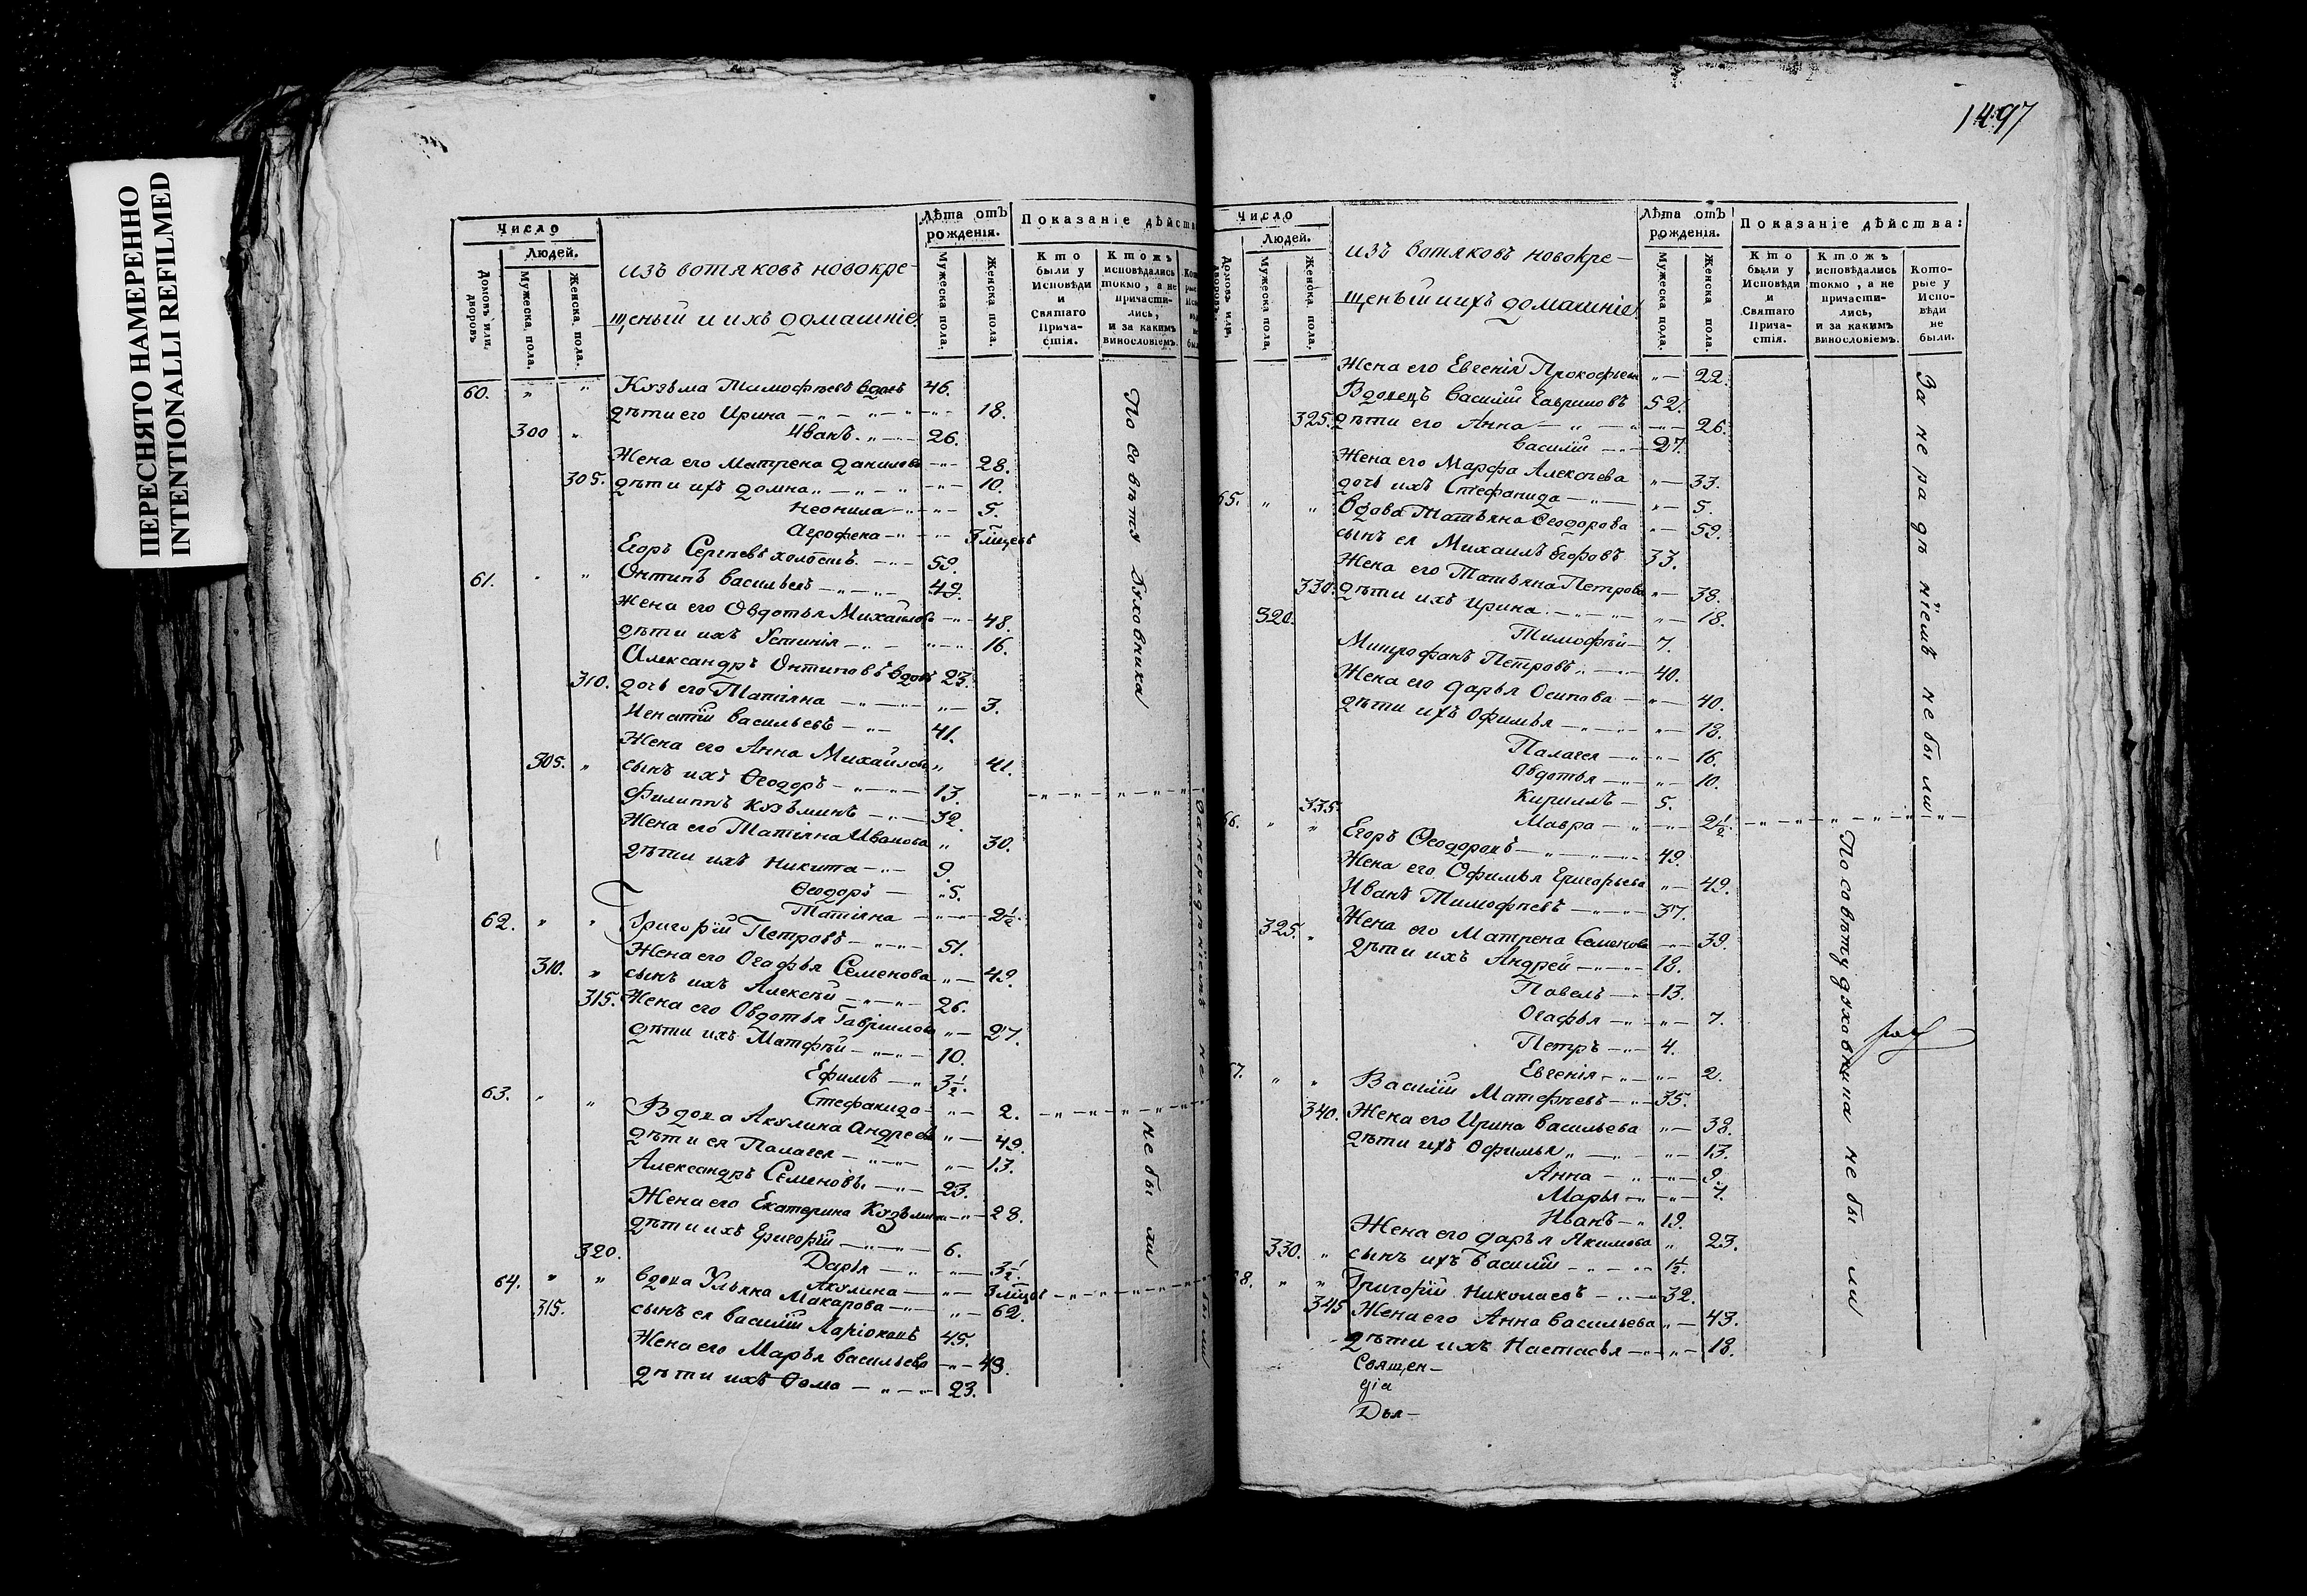 ПЕРЕСНЯТО НАМЕРЕННО
INTENTIONALLI REFILMED
1497
Число
Людей.
Домовъ или дворовъ
Мужеска пола.
Женска пола.
изъ вотяковъ новокре-
щеный и ихъ домашніе
Лѣта отъ
рожденія.
Мужеска пола.
Женска пола.
Показаніе дѣйства
Кто
были у
Исповѣди
и
Святаго
Прича-
стія.
Ктожъ
исповѣдались
токмо, а не
причасти-
лись,
и за какимъ
винословіемъ.
60. " " Кузьма Тимофѣевъ вдовъ 46.
дѣти его Ирина 18.
300 " Иванъ 26.
Жена его Матрена Данилова 28.
305. дѣти ихъ Домна 10.
Неонила 5.
Агрофена
Егоръ Сергѣевъ холостъ 59.
61. " " Онтипъ Васильевъ 49.
Жена его Овдотья Михайлова 48.
дѣти ихъ Устинія 16.
Александръ Онтиповъ вдовъ 23.
310. дочь его Татіяна 3.
Игнатій Васильевъ 41.
Жена его Анна Михайлова 41.
305. " сынъ ихъ Ѳеодоръ 13.
Филиппъ Кузьминъ 32.
Жена его Татіяна Иванова 30.
дѣти ихъ Никита 9.
Ѳеодоръ 5.
Татіяна 2½.
62. " " Григорій Петровъ 51.
Жена его Огафья Семенова 49.
310. " сынъ ихъ Алексѣй 26.
315. Жена его Овдотья Гавріилова 27.
дѣти ихъ Матфѣй 10.
Ефимъ 3½.
Стефанида 2.
63. " " Вдова Акулина Андреева 49.
дѣти ея Палагея 13.
Александръ Семеновъ 23.
Жена его Екатерина Кузьмина 28.
дѣти ихъ Григорій 6.
320. Дарья 3½.
Акулина
64. " " вдова Ульяна Макарова 62.
315. сынъ ея Василій Ларіоновъ 45.
Жена его Марья Васильева 49.
дѣти ихъ Ѳома 23.
По совѣту духовника
не были
За нерадѣніемъ не были
Число
Людей.
Мужеска пола,
Женска пола,
изъ вотяковъ новокре-
щеный и ихъ домашніе
Лѣта отъ
рожденія.
Мужеска пола.
Женска пола.
Показаніе дѣйства:
Кто
были у
Исповѣди
и
Святаго
Прича-
стія.
Ктожъ
исповѣдались
токмо, а не
причасти-
лись,
и за какимъ
винословіемъ.
Кото-
рые у
Испо-
вѣди
не
были.
Жена его Евгенія Прокофьева 22.
Вдовецъ Василій Гавриловъ 52.
325. дѣти его Анна 26.
Василій 27.
Жена его Марфа Алексѣева 33.
дочь ихъ Стефанида 5.
65. " " Вдова Татьяна Ѳеодорова 59.
сынъ ея Михаилъ Егоровъ 33.
Жена его Татьяна Петрова 38.
330. дѣти ихъ Ирина 18.
320. Тимофѣй 7.
Митрофанъ Петровъ 40.
Жена его Дарья Осипова 40.
дѣти ихъ Офимья 18.
Палагея 16.
Овдотья 10.
Кириллъ 5.
335. Мавра 2½.
66. " " Егоръ Ѳеодоровъ 49.
Жена его Офимья Григорьева 49.
Иванъ Тимофѣевъ 37.
Жена его Матрена Семенова 39.
325. " дѣти ихъ Андрей 18.
Павелъ 13.
Огафья 7.
Петръ 4.
Евгенія 2.
67. " " Василій Матфѣевъ 35.
340. Жена его Ирина Васильева 38.
дѣти ихъ Офимья 13.
Анна 9.
Марья 7.
Иванъ 19.
Жена его Дарья Акимова 23.
330. " сынъ ихъ Василій 1½.
68. " " Григорій Николаевъ 32.
345 Жена его Анна Васильева 43.
дѣти ихъ Настасья 18.
За нерадѣніемъ не были
По совѣту духовника не были
Священ-
Дья-